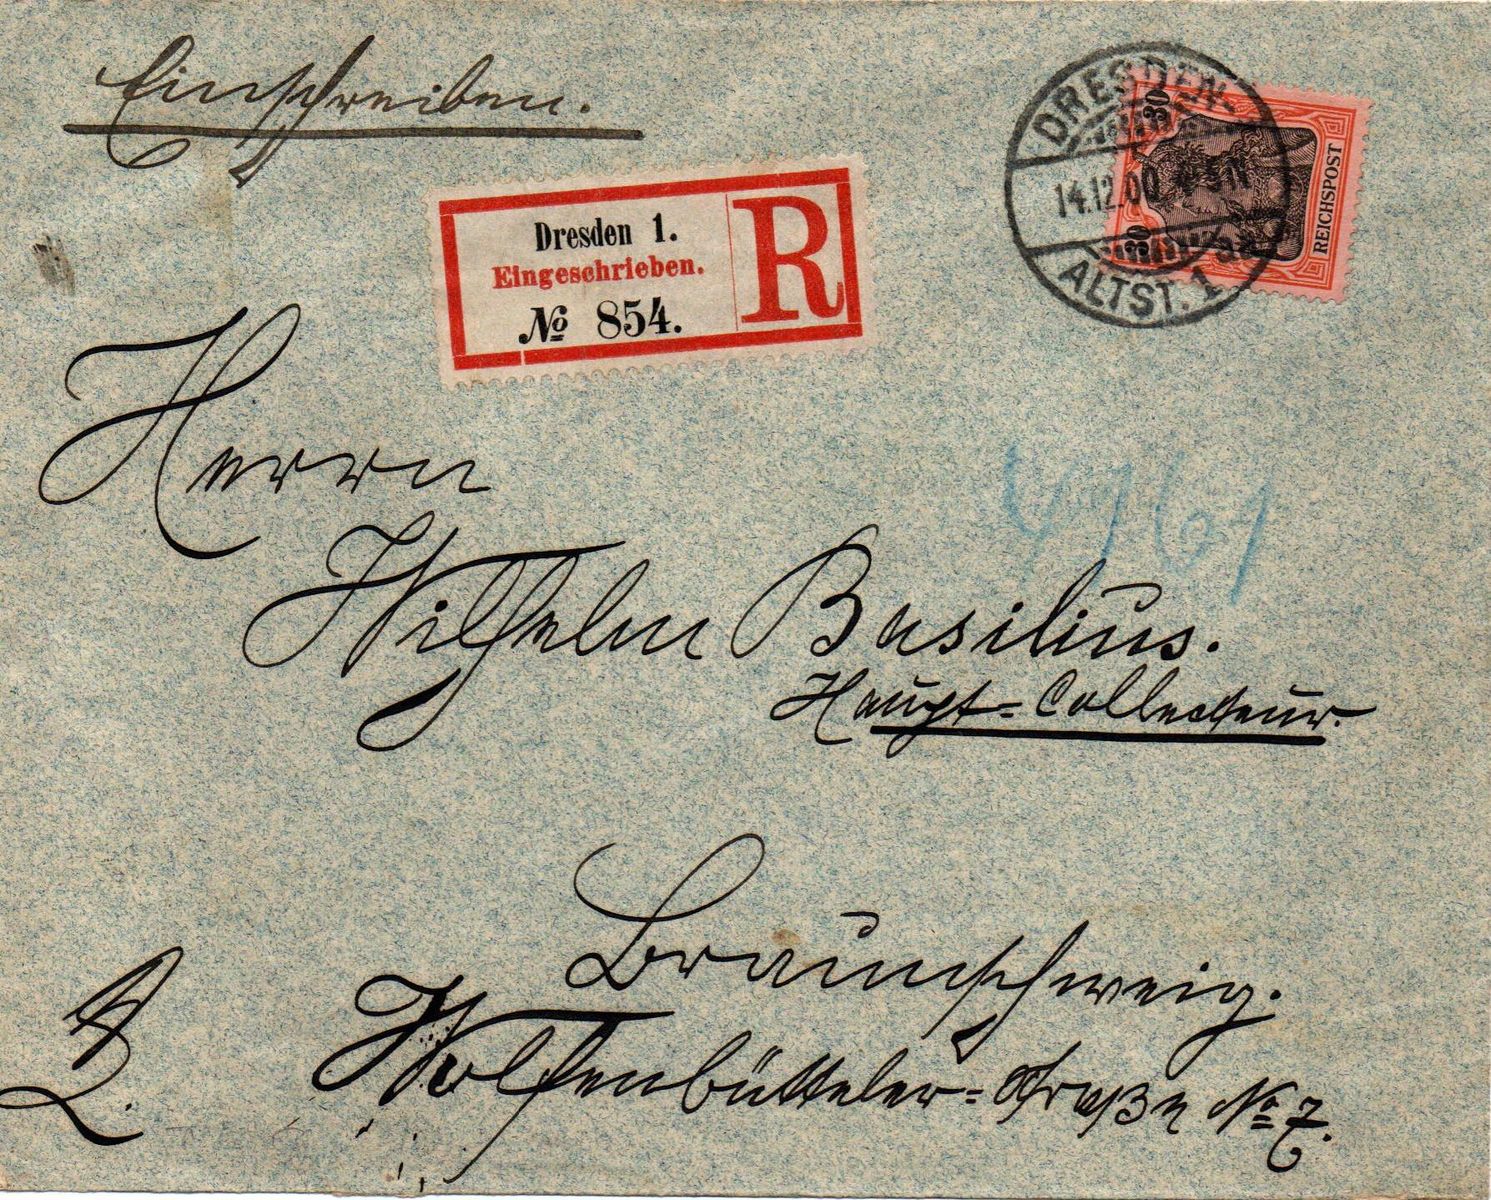 Einschreiben.
DRESDEN-
14.12.00
ALTST. 1
30
30
REICHSPOST
Dresden 1.
Eingeschrieben.
№ 854.
R
Herrn
Wilhelm Basilius.
Haupt-Collecteur.
Braunschweig.
Wolfenbütteler-Straße No 7.